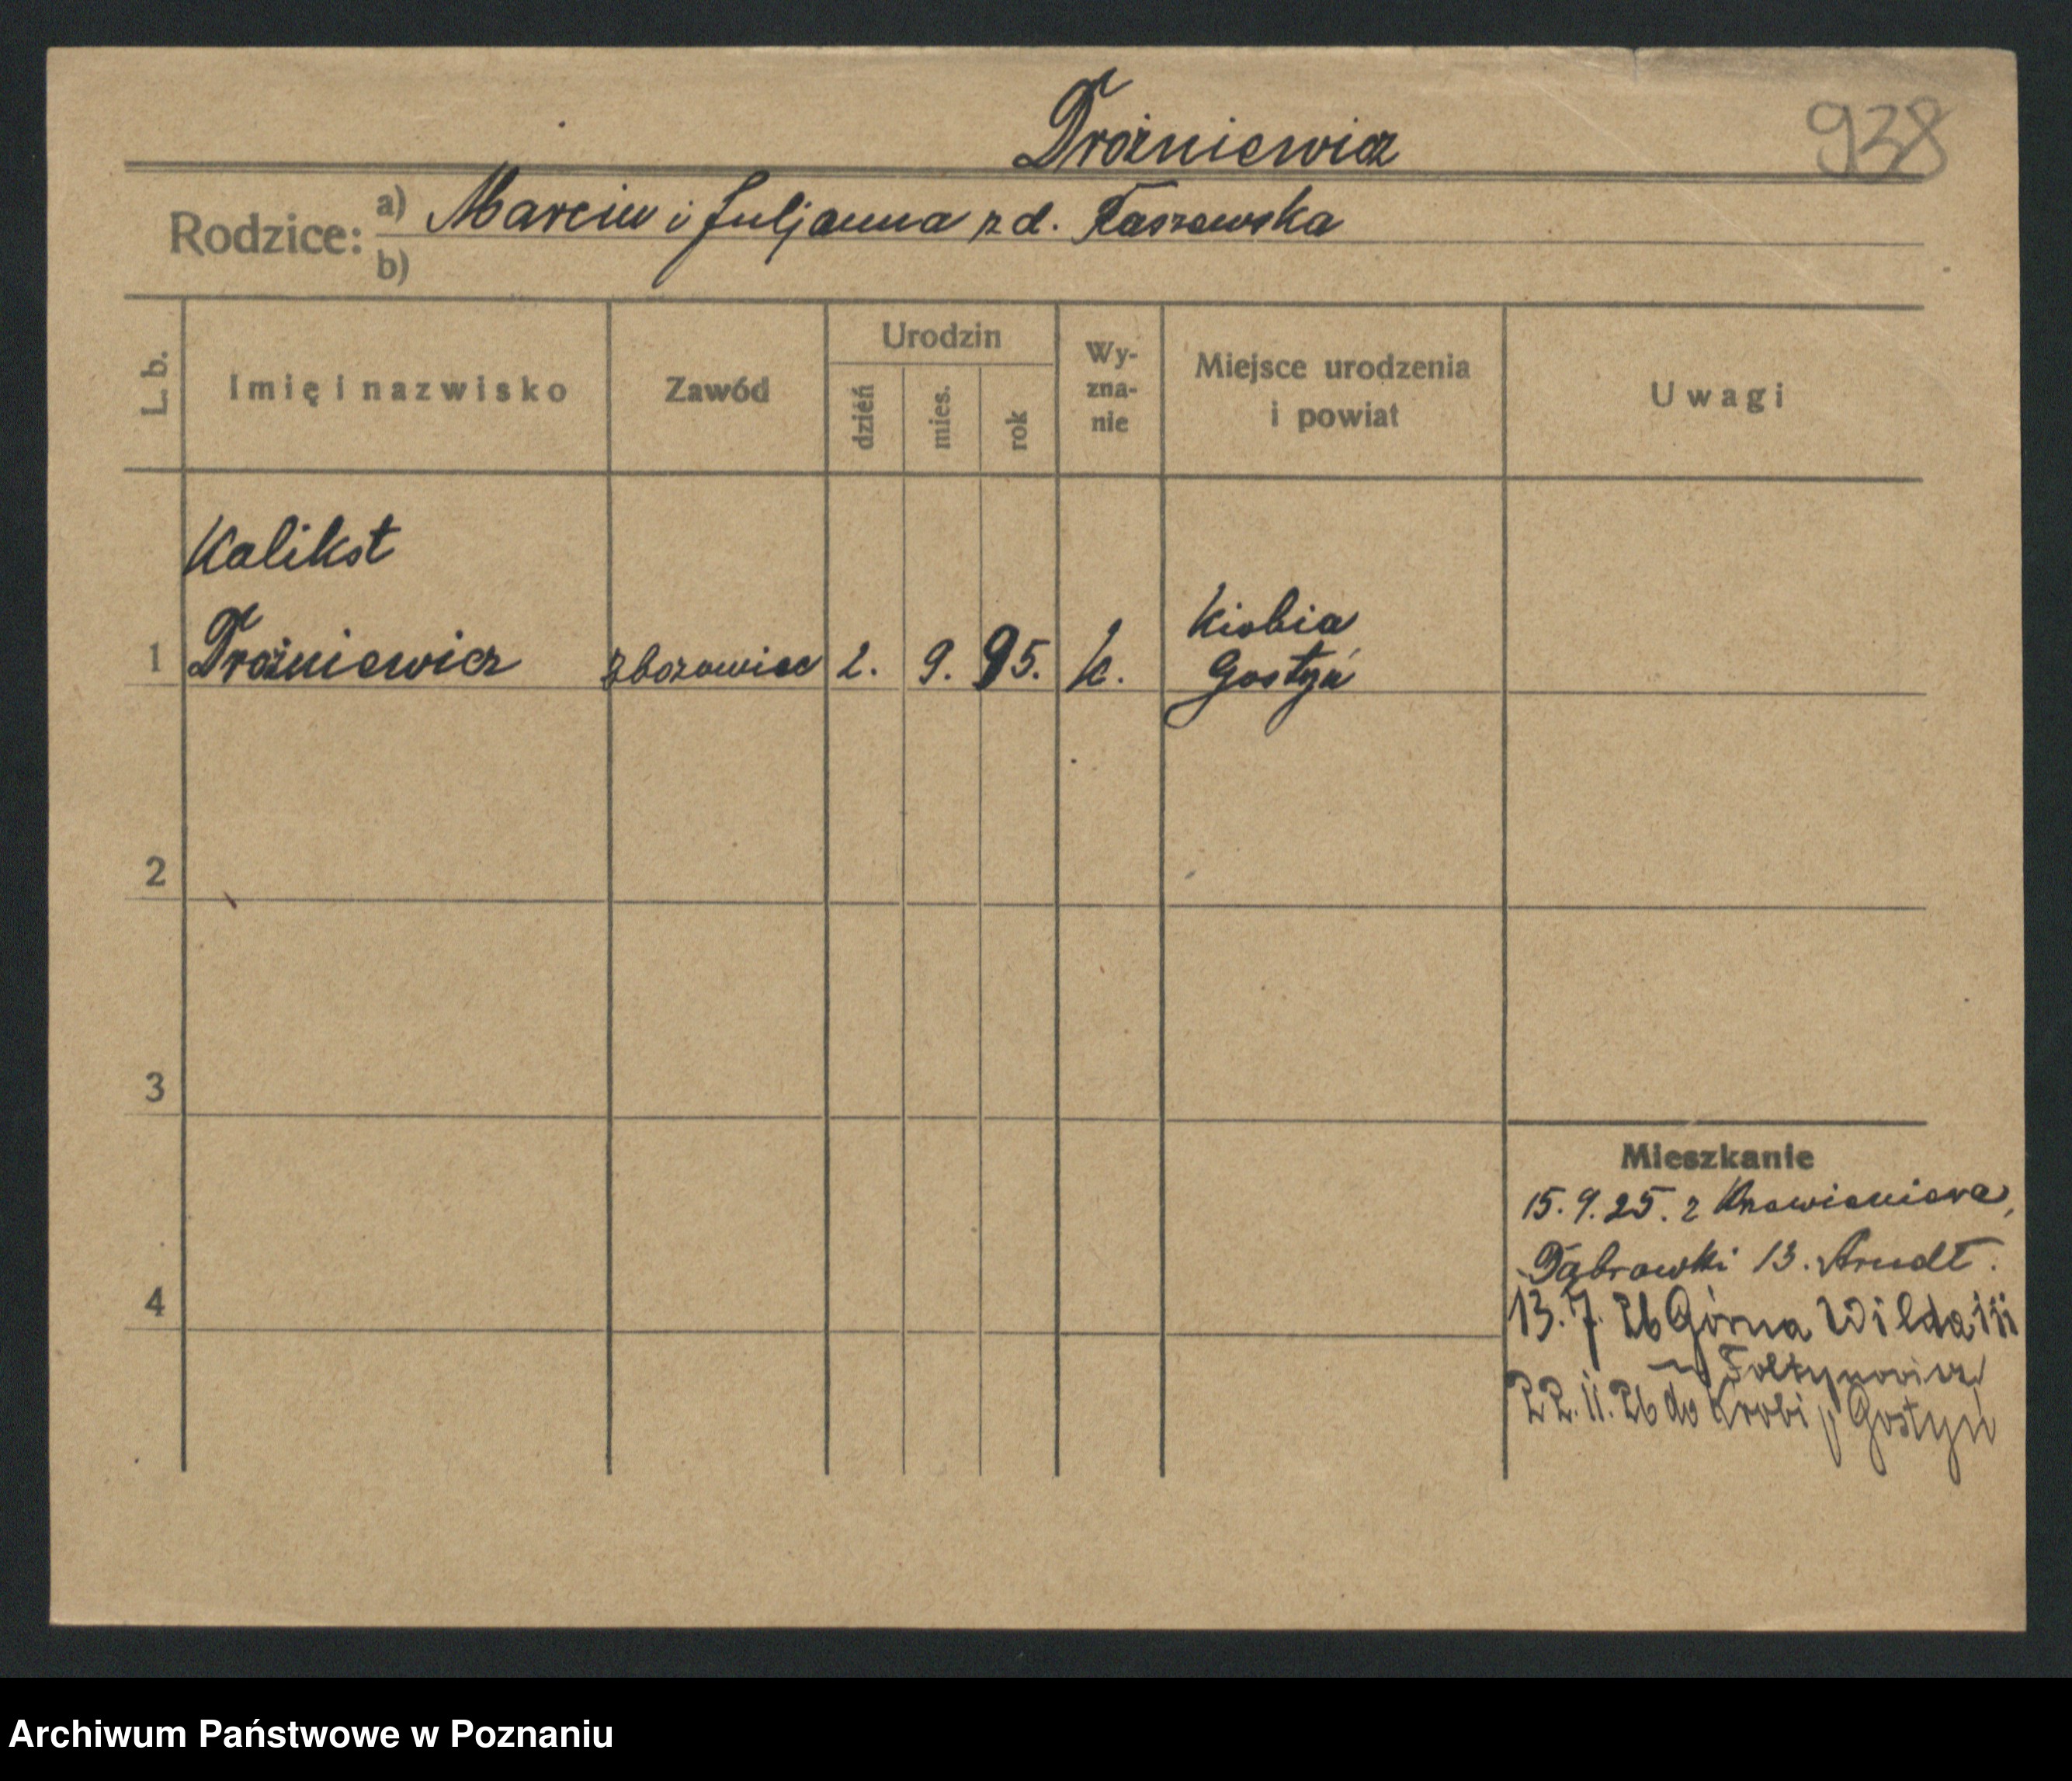 Drożniewicz
938
Rodzice: a) Marcin i Juljanna z d. Taszewska
b)
L. b.
Imię i nazwisko
Zawód
Urodzin
dzień
mies.
rok
Wy-
zna-
nie
Miejsce urodzenia
i powiat
Uwagi
Kalikst
1 Drożniewicz zbożowiec 2. 9. 95. k. Krobia
Gostyń
2
3
4
Mieszkanie
15. 9. 25. z
Dąbrowski 13. Arndt.
13. 7. 26 Górna Wilda 111
Foltynowicz
22. 11. 26 do Krobi p Gostyń
Archiwum Państwowe w Poznaniu